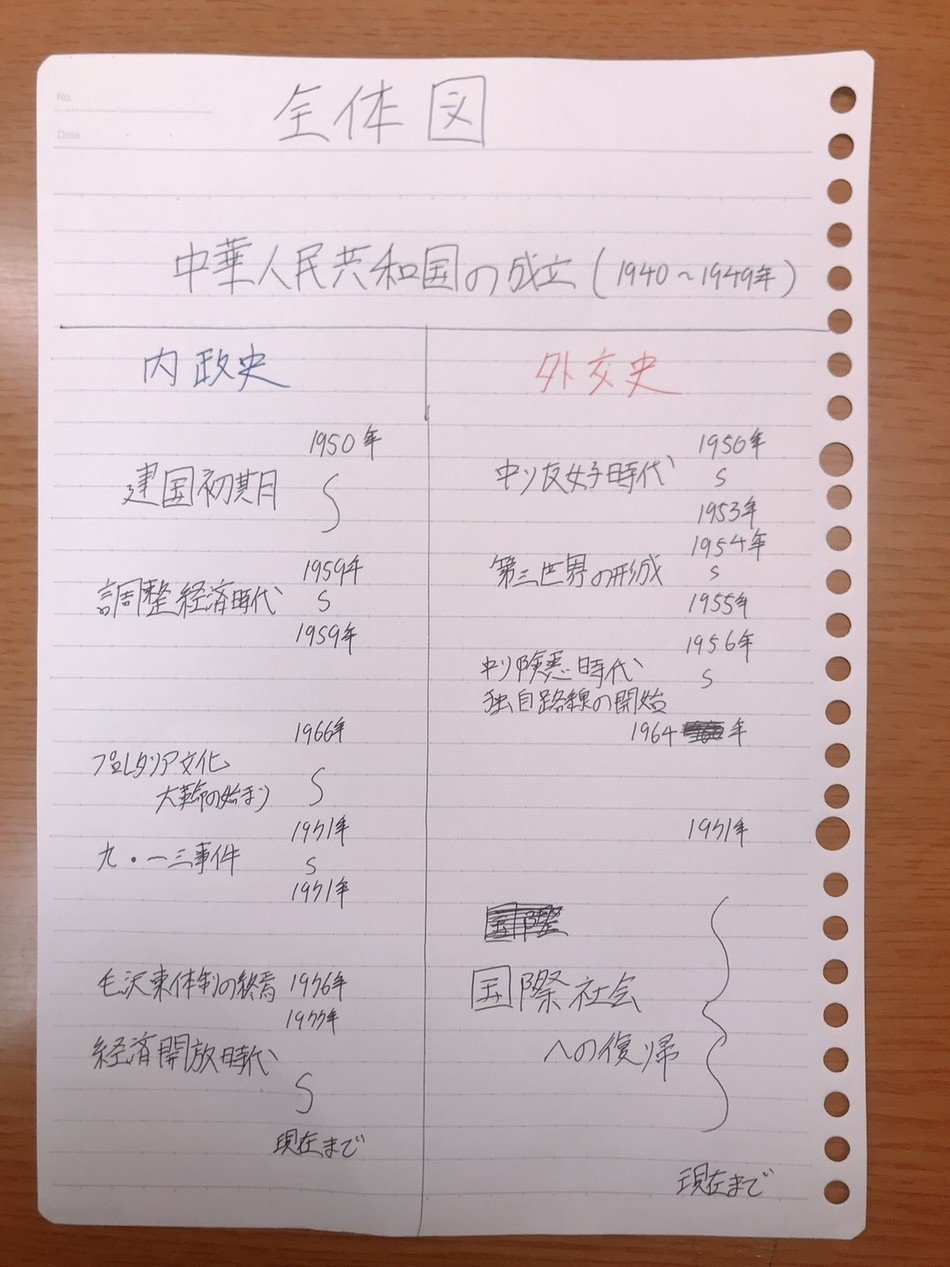 No.
Date
全体図
中華人民共和国の成立(1940～1949年)
内政史
1950年
建国初期
S
1959年
調整経済時代
S
1959年
1966年
プロレタリア文化
大革命の始まり
S
1971年
九・一三事件
S
1971年
毛沢東体制の終焉 1976年
1977年
経済開放時代
S
現在まで
外交史
1950年
中ソ友好時代
S
1953年
1954年
第三世界の形成
S
1955年
1956年
中ソ険悪時代
S
独自路線の開始
1964 年
1971年
国際
国際社会
への復帰
現在まで